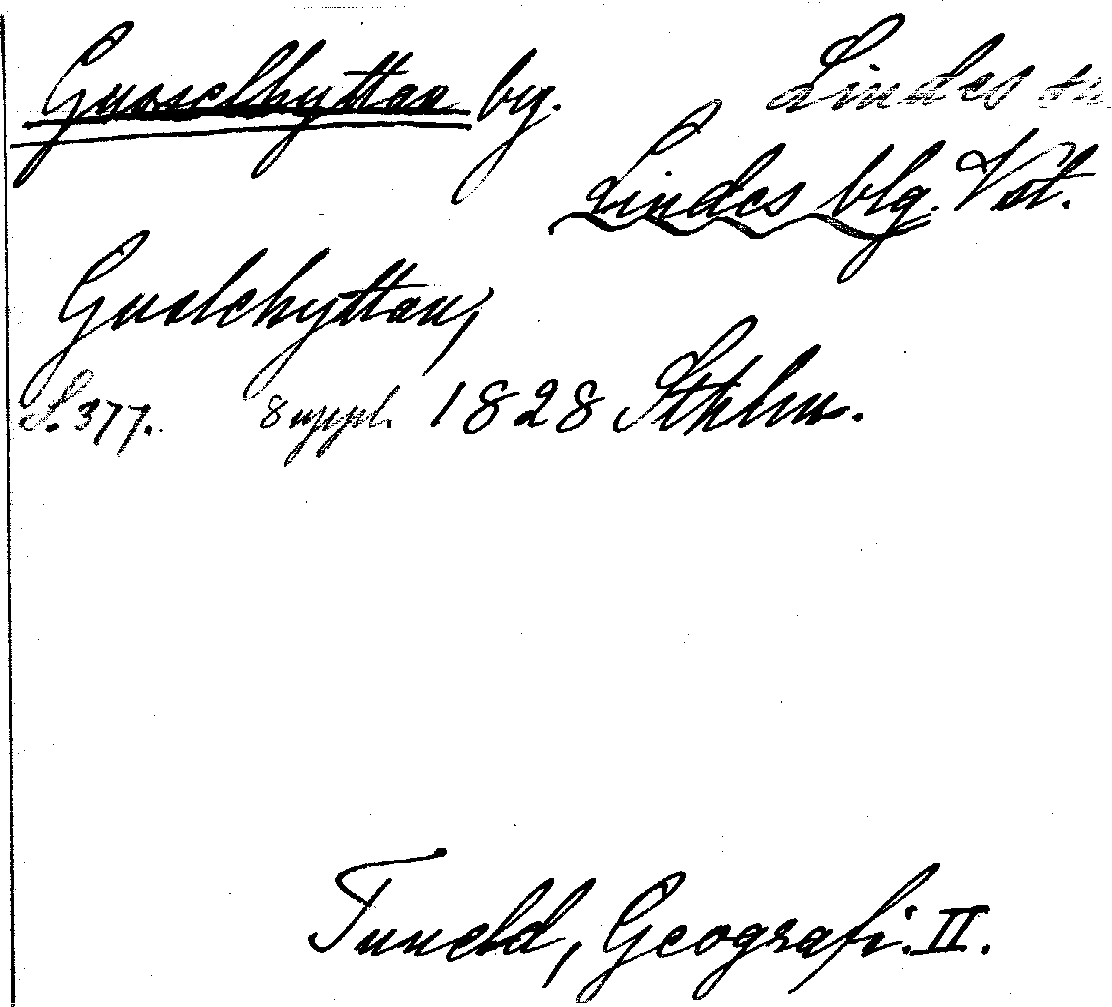 Gusselhyttan by. Lindes sn
Lindes blg. Vstl.
Guslehyttan,
S. 377. 8 uppl. 1828 Sthlm.
Tuneld, Geografi. II.